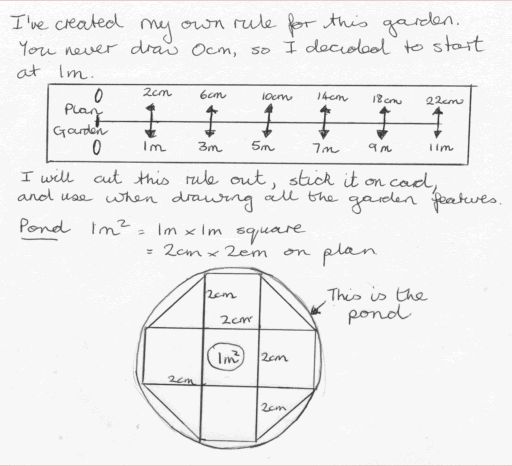 I've created my own rule for this garden.
You never draw 0cm, so I decided to start
at 1m.
0 2cm 6cm 10cm 14cm 18cm 22cm
Plan
Garden
0 1m 3m 5m 7m 9m 11m
I will cut this rule out, stick it on card,
and use when drawing all the garden features.
Pond 1m² = 1m × 1m square
= 2cm × 2cm on plan
This is the
pond
2cm
2cm
1m² 2cm
2cm
2cm